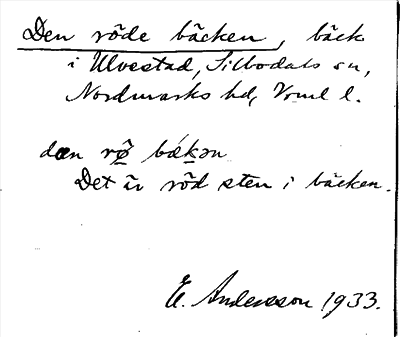 Den röde bäcken, bäck
i Ulvestad, Sillbodals sn,
Nordmarks hd, Vrml l.
dæn rø̂ bækən
Det är röd sten i bäcken.
E. Andersson 1933.